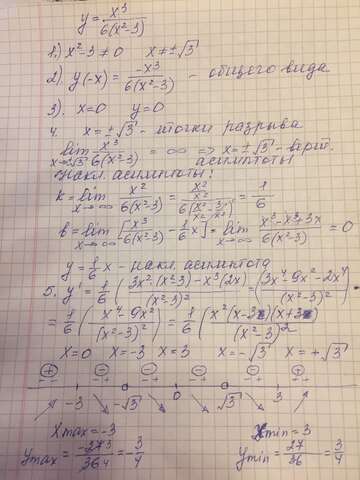 y = x³/6(x²-3)
1.) x²-3 ≠ 0 x ≠ ±√3
2) y(-x) = -x³/6(x²-3) - общего вида
3). x=0 y=0
4. x = ±√3 - точки разрыва
lim x→±√3 x³/6(x²-3) = ∞ => x = ±√3 - верт. асимптоты
Накл. асимптоты:
k = lim x→∞ x²/6(x²-3) = (x²/x²)/6(x²/x² - 3/x²) = 1/6
b = lim x→∞ [x³/6(x²-3) - 1/6 x] = lim x→∞ x³-x³+3x/6(x²-3) = 0
y = 1/6 x - накл. асимптота
5. y' = 1/6 (3x²·(x²-3) - x³(2x)/(x²-3)²) = (3x⁴-9x²-2x⁴/(x²-3)²) ·
= 1/6 (x⁴-9x²/(x²-3)²) = 1/6 (x²(x-3)(x+3)/(x²-3)²
x=0 x=-3 x=3 x=-√3 x=+√3
⊕ ⊖ ⊖ ⊖ ⊖ ⊕
-- +- +- +- +- ++
-3 -√3 0 √3 3
↗ ↘ ↘ ↘ ↘ ↗
Xmax = -3 Xmin = 3
Ymax = -27 3/36 4 = -3/4 Ymin = 27/36 = 3/4